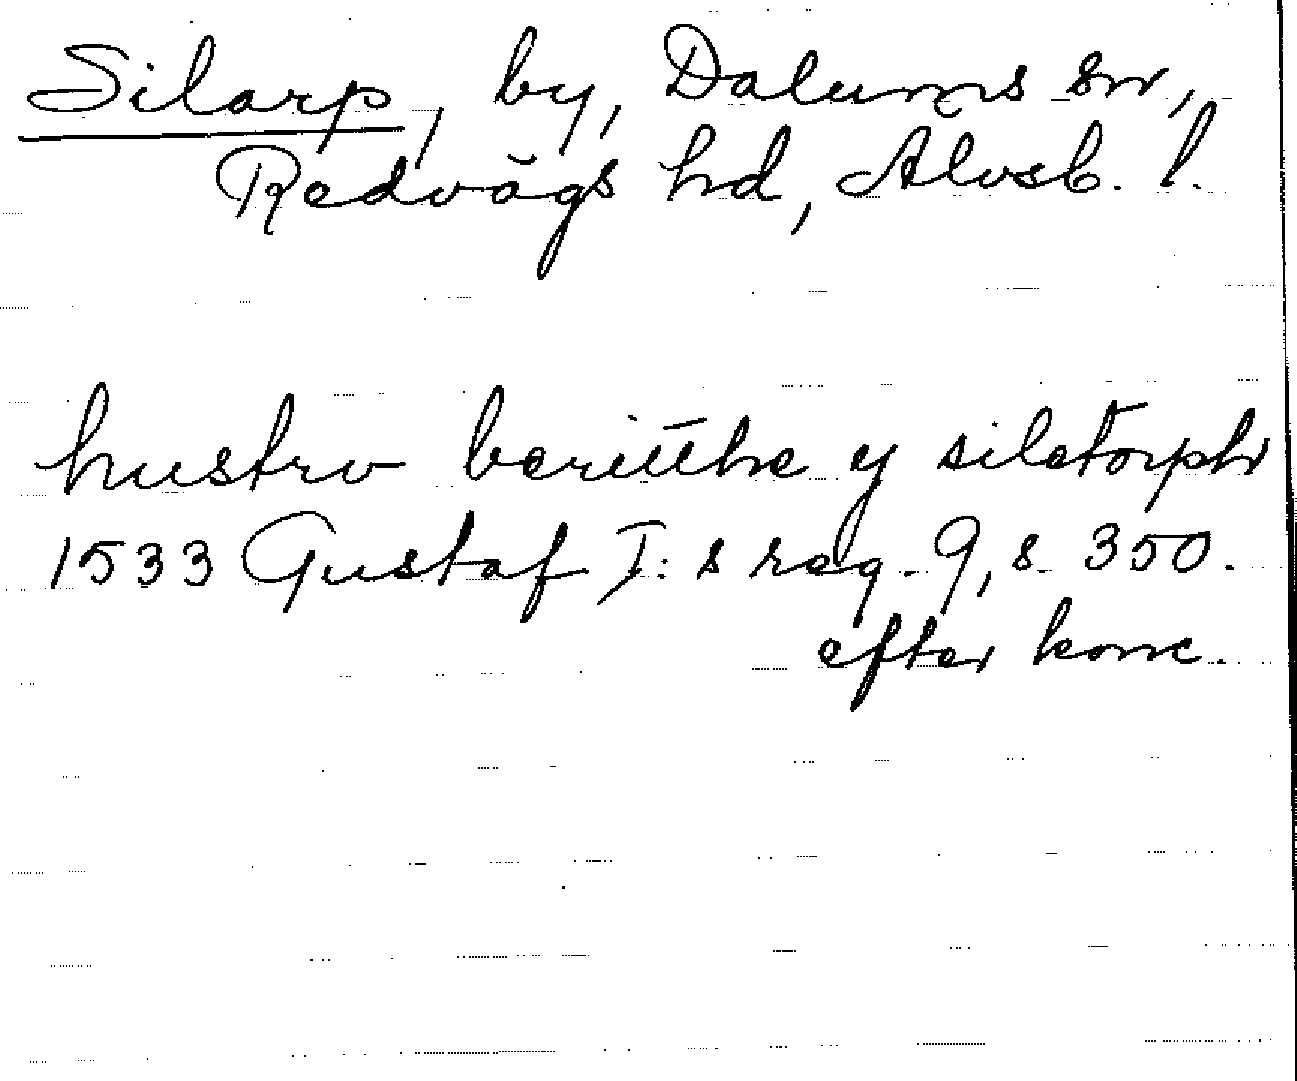 Silarp, by, Dalums sn,
Redvägs hd, Älvsb. l.
hustrv beritthe y siletorph
1533 Gustaf I:s reg. 9, s 350.
efter konc.